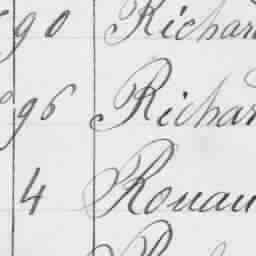 90 Richar
96 Richar
4 Rouau